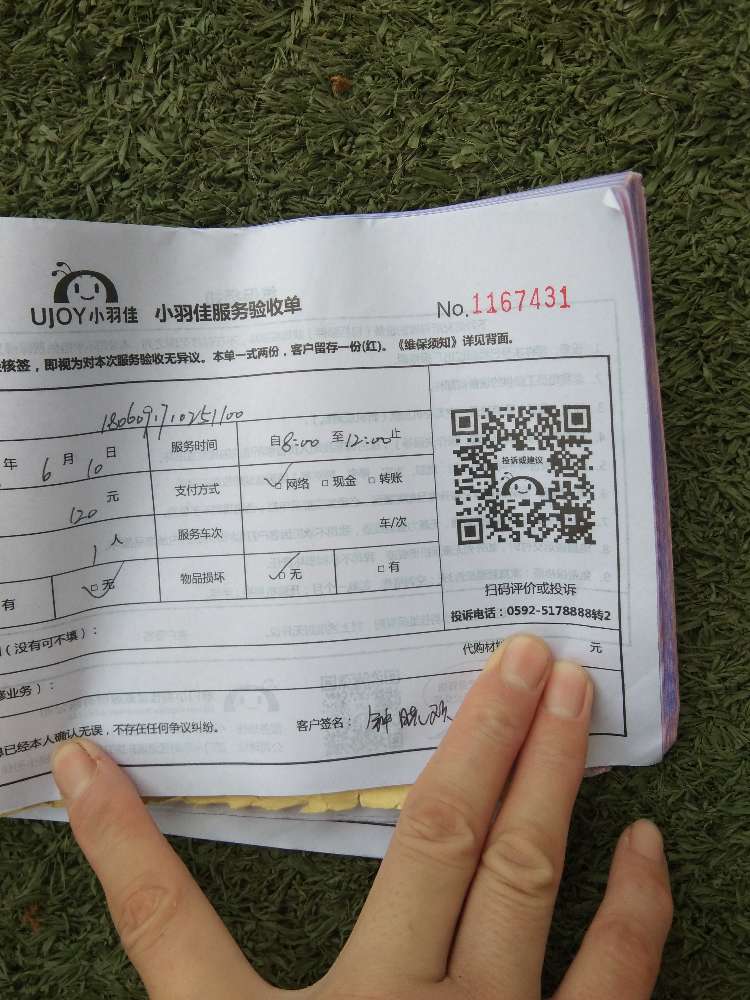 UJOY小羽佳 小羽佳服务验收单 No.1167431
核签，即视为对本次服务验收无异议。本单一式两份，客户留存一份(红)。《维保须知》详见背面。
1806091710251100
年 6 月 10 日 服务时间 自8:00 至12:00止
120 元 支付方式 ✓□网络 □现金 □转账
1 人 服务车次 车/次
有 ✓□无 物品损坏 ✓□无 □有
投诉或建议
扫码评价或投诉
投诉电话：0592-5178888转2
(没有可不填)： 代购材 元
业务)：
已经本人确认无误，不存在任何争议纠纷。 客户签名：钟晓欢